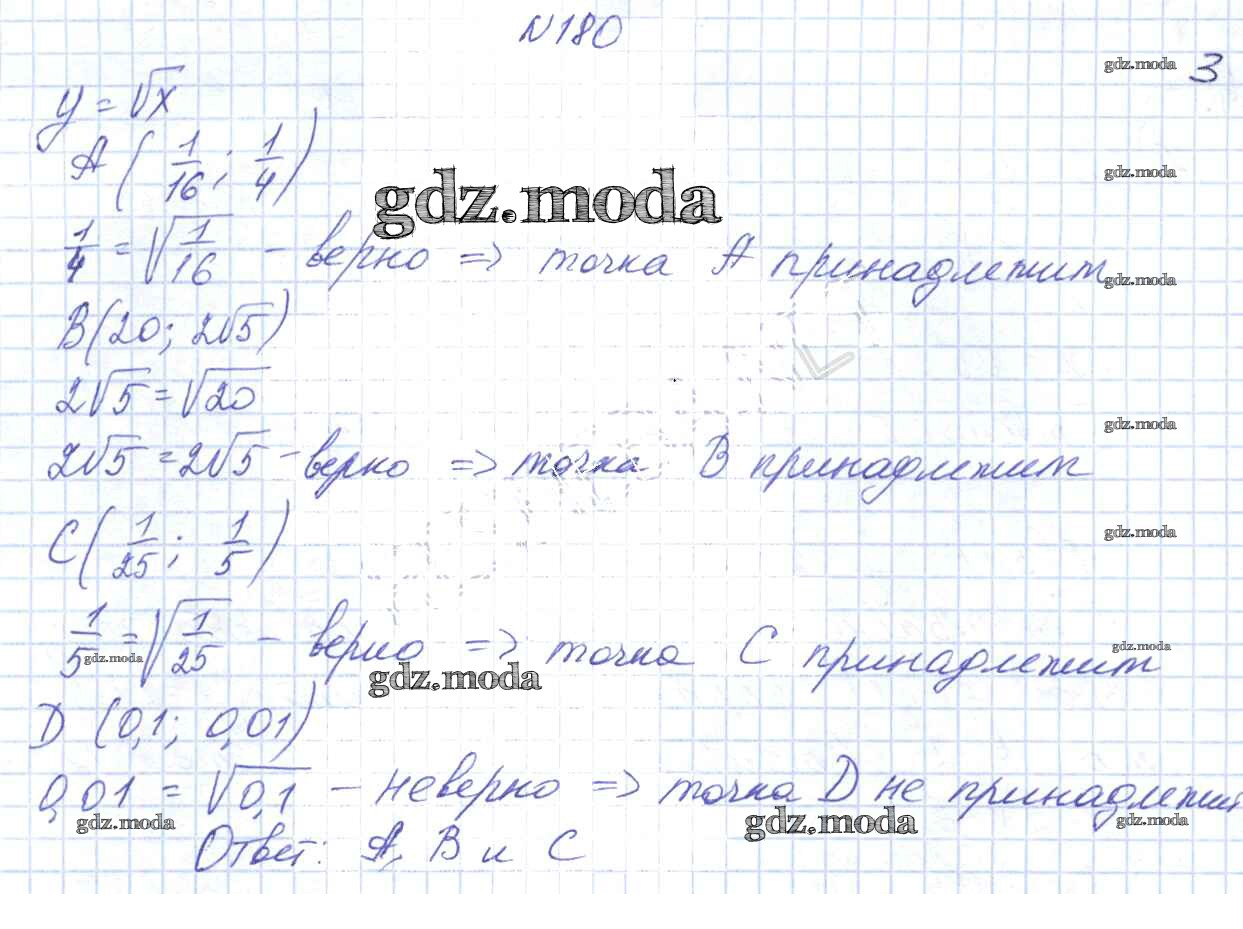 N180
gdz.moda 3
y = √x
A (1/16; 1/4)
gdz.moda
gdz.moda
1/4 = √1/16 - верно => точка A принадлежит
gdz.moda
B(20; 2√5)
2√5 = √20
gdz.moda
2√5 = 2√5 - верно => точка B принадлежит
C(1/25; 1/5)
gdz.moda
1/5 = √1/25 - верно => точка C принадлежит
gdz.moda gdz.moda
gdz.moda
D (0,1; 0,01)
0,01 = √0,1 - неверно => точка D не принадлежит
gdz.moda gdz.moda gdz.moda
Ответ: A, B и C